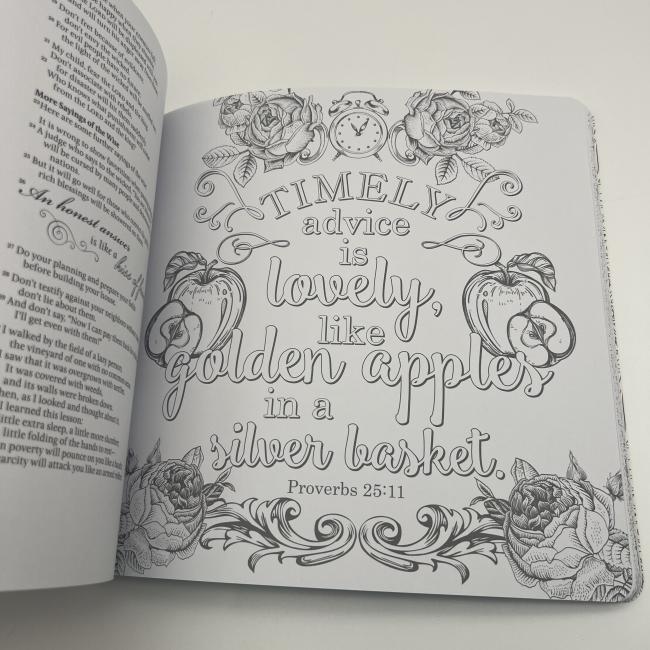 Don't fret because of evildoers
For evil people have no
the light of the wicked
My child, fear the LORD and the
Don't associate with
for disaster will hit them
Who knows what punishment
from the LORD and the king?
More Sayings of the Wise
Here are some further sayings of the wise:
It is wrong to show favoritism when
A judge who says to the wicked,
will be cursed by many people
nations.
But it will go well for those who
rich blessings will be showered on
An honest answer
is like a kiss of
27 Do your planning and prepare your
before building your house.
28 Don't testify against your neighbors
don't lie about them.
29 And don't say, "Now I can pay them back
I'll get even with them!"
I walked by the field of a lazy person,
the vineyard of one with no common sense.
I saw that it was overgrown with nettles.
It was covered with weeds,
and its walls were broken down.
hen, as I looked and thought about it,
I learned this lesson:
little extra sleep, a little more slumber,
little folding of the hands to rest—
n poverty will pounce on you like a bandit;
carcity will attack you like an armed
TIMELY
advice
is
lovely,
like
golden apples
in a
silver basket.
Proverbs 25:11